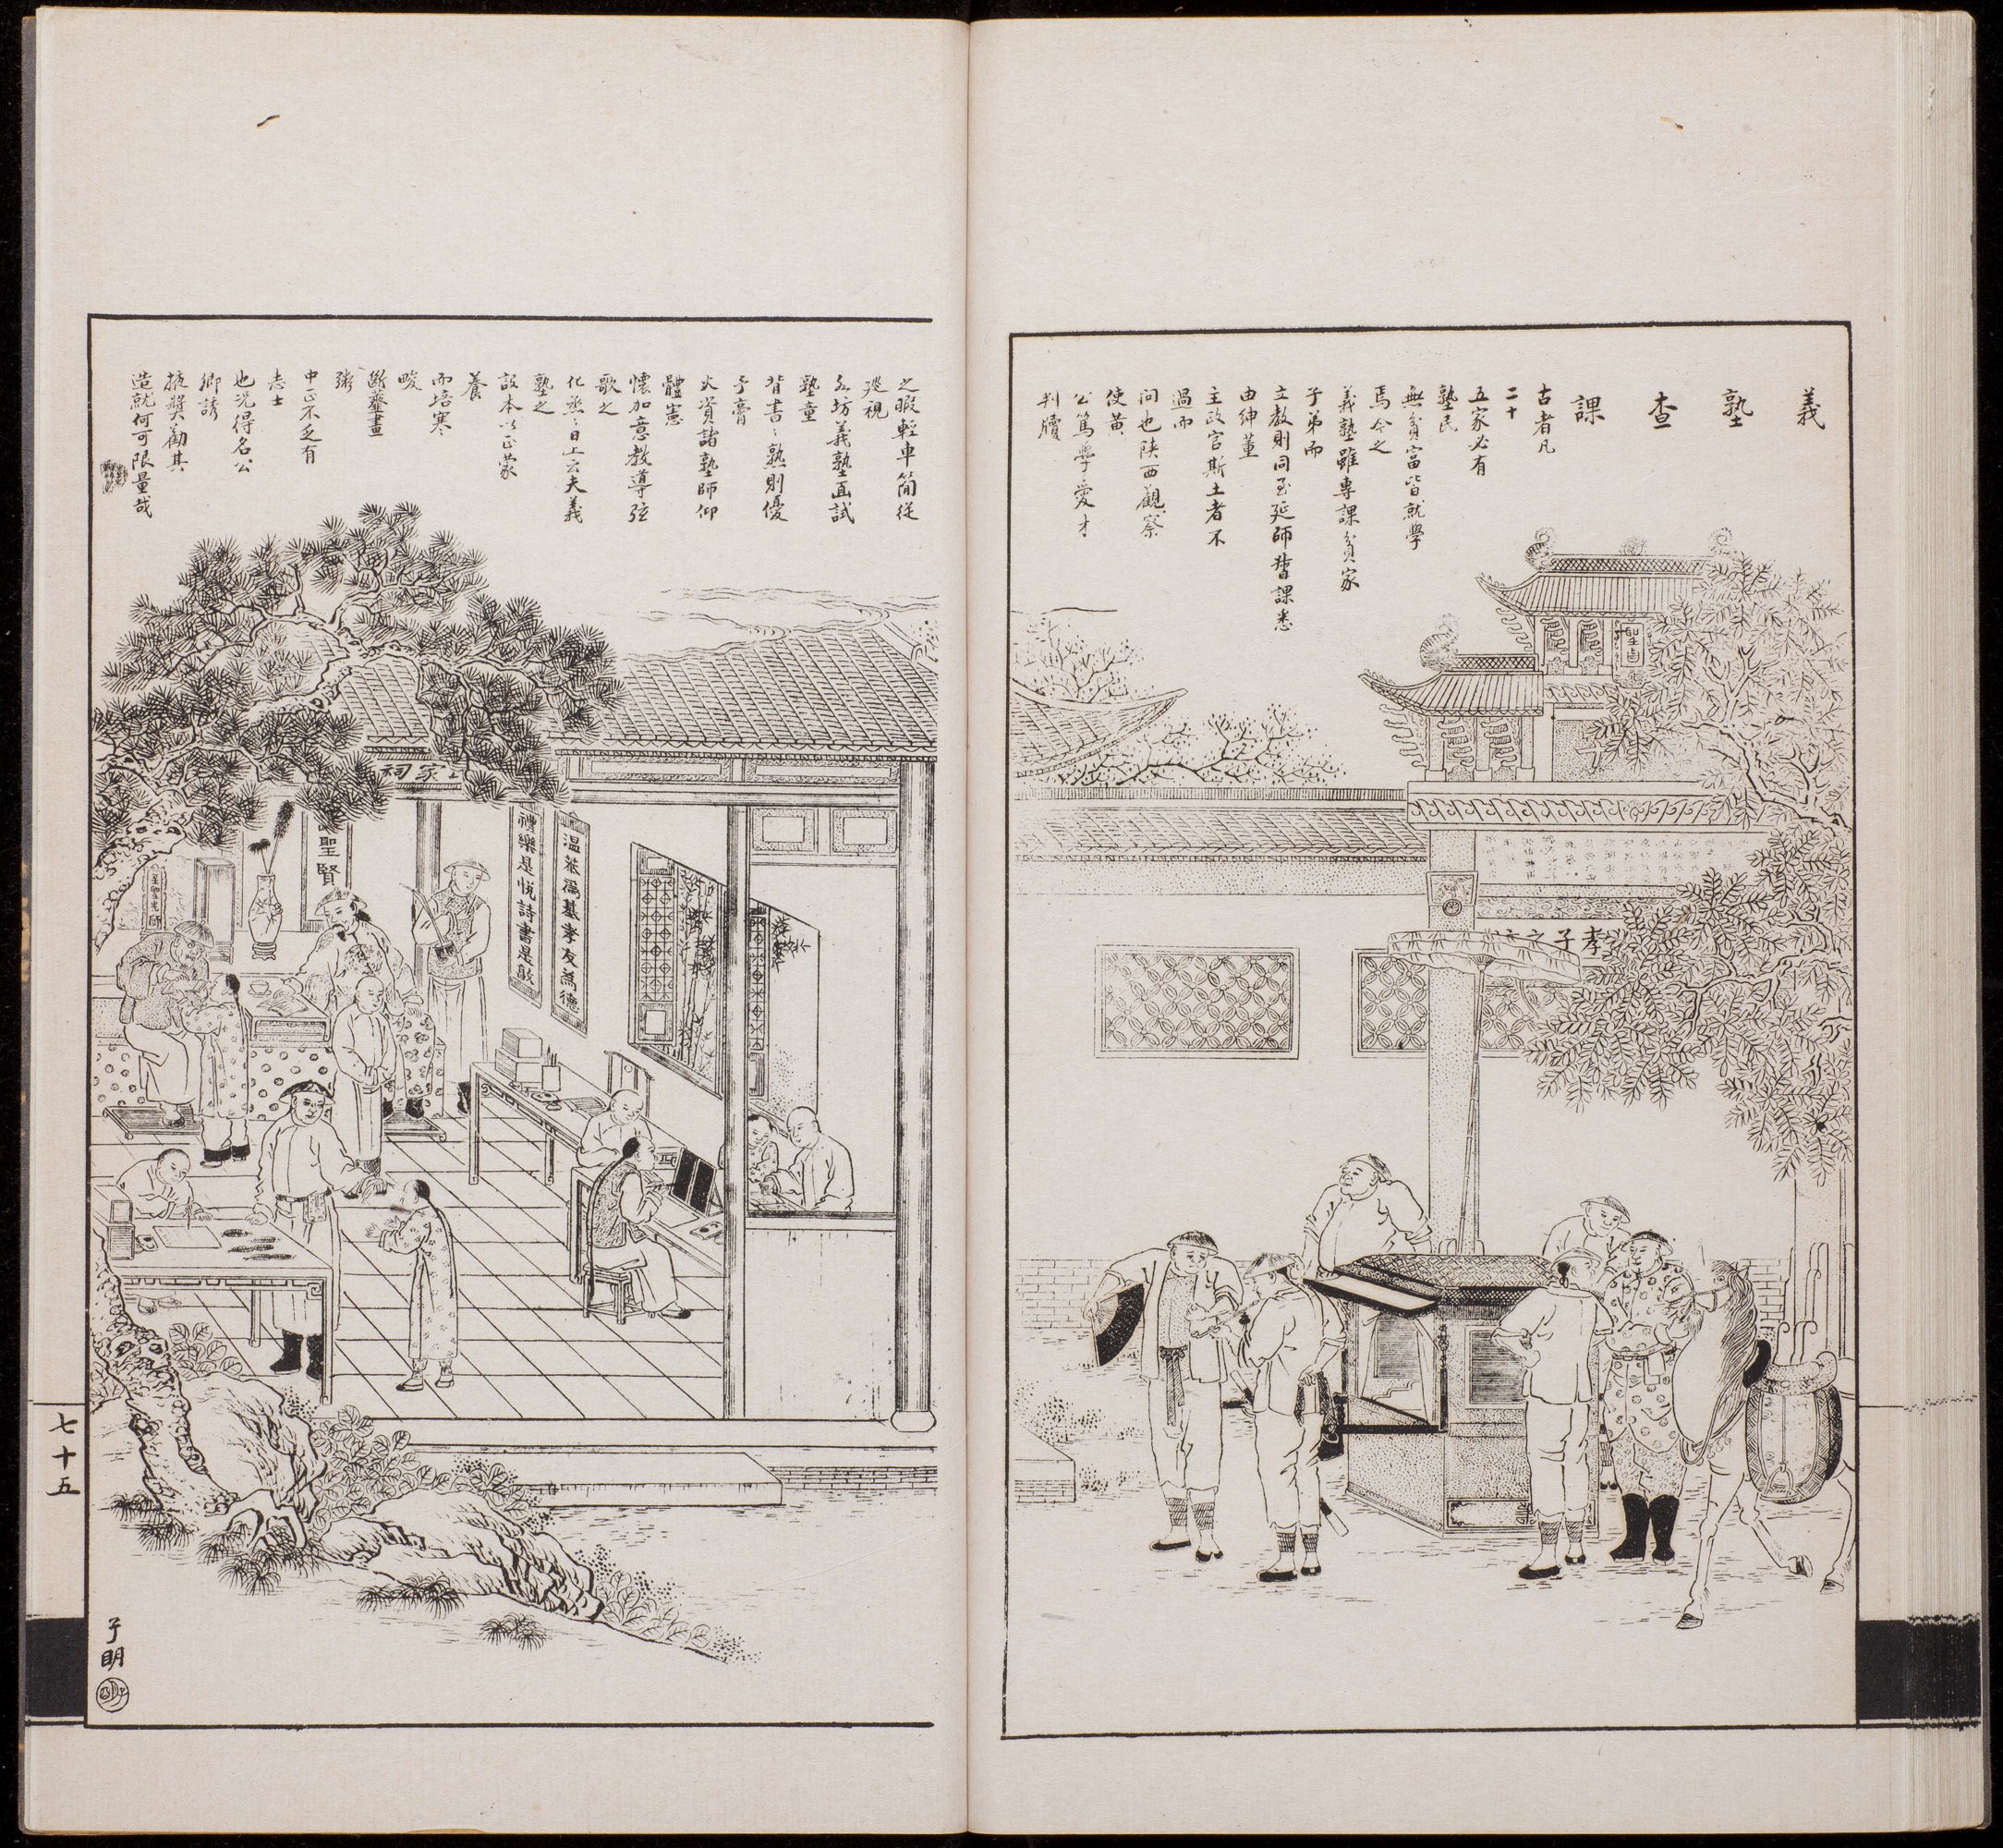 義塾查課
古者凡
二十
五家必有
塾民
無貧富皆就學
焉今之
義塾雖專課貧家
子弟而
立教則同至延師督課悉
由紳董
主政官斯土者不
過而
問也陝西觀察
使黃
公篤學愛才
判牘
之暇輕車簡從
廵視
各坊義塾面試
塾童
背書之熟則優
予膏
火資諸塾師仰
體憲
懷加意教導弦
歌之
化烝烝日上云夫義
塾之
設本以正蒙
養
而培寒
畯
斷虀畫
粥
中正不乏有
志士
也況得名公
卿誘
掖獎勸其
造就何可限量哉
聖旨
孝子之
家祠
聖賢
禮樂是悅詩書是敦
溫恭為基孝友為德
七十五
子明